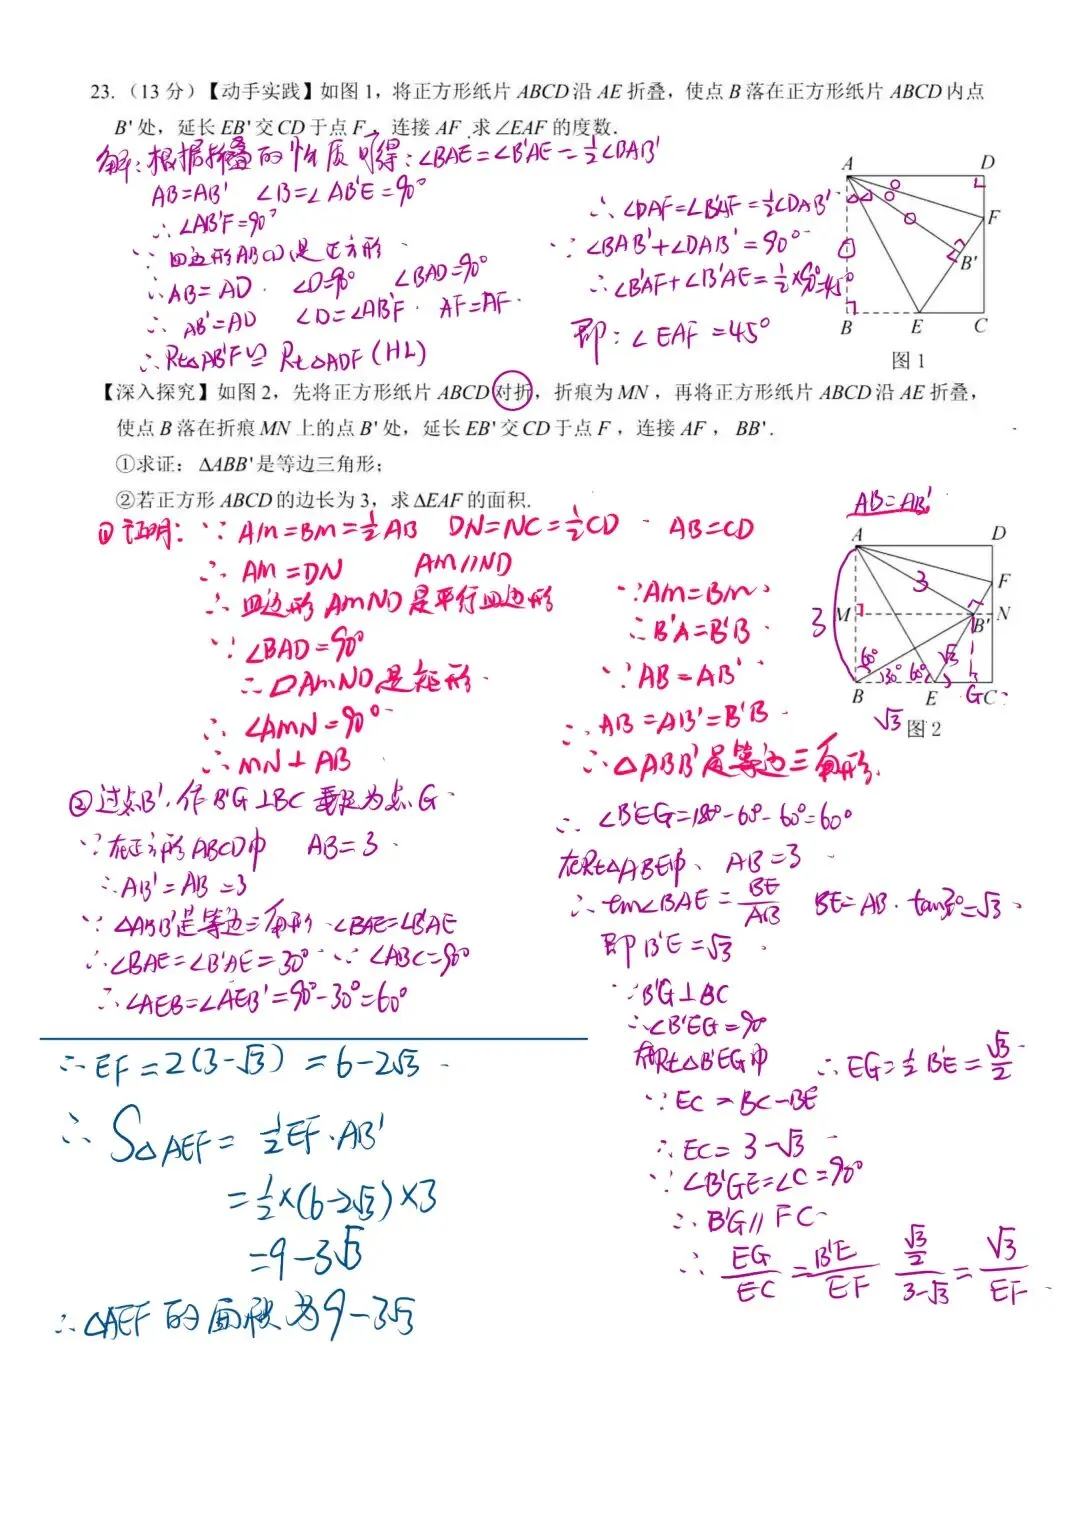 23. （13 分）【动手实践】如图 1，将正方形纸片 ABCD 沿 AE 折叠，使点 B 落在正方形纸片 ABCD 内点
B' 处，延长 EB' 交 CD 于点 F，连接 AF .求 ∠EAF 的度数.
解：根据折叠的性质可得：∠BAE=∠B'AE=½∠BAB'
AB=AB' ∠B=∠AB'E=90°
∴∠AB'F=90°
∵四边形ABCD是正方形
∴AB=AD ∠D=90° ∠BAD=90°
∴AB'=AD ∠D=∠AB'F AF=AF
∴Rt△AB'F≌Rt△ADF(HL)
∴∠DAF=∠B'AF=½∠DAB'
∵∠BAB'+∠DAB'=90°
∴∠B'AF+∠B'AE=½×90°=45°
即：∠EAF=45°
A
D
F
B'
B
E
C
图 1
【深入探究】如图 2，先将正方形纸片 ABCD 对折，折痕为 MN ，再将正方形纸片 ABCD 沿 AE 折叠，
使点 B 落在折痕 MN 上的点 B' 处，延长 EB' 交 CD 于点 F ，连接 AF ， BB' .
①求证：△ABB' 是等边三角形；
②若正方形 ABCD 的边长为 3，求 △EAF 的面积.
①证明：∵AM=BM=½AB DN=NC=½CD AB=CD
∴AM=DN AM//ND
∴四边形AMND是平行四边形
∵∠BAD=90°
∴▱AMND是矩形
∴∠AMN=90°
∴MN⊥AB
∵AM=BM
∴B'A=B'B
∵AB=AB'
∴AB=AB'=B'B
∴△ABB'是等边三角形
AB=AB'
A
D
3
F
3
M
B'
N
60°
30°
60°
√3
B
E
G
C
√3
图 2
②过点B'，作B'G⊥BC垂足为点G
∵在正方形ABCD中 AB=3
∴AB'=AB=3
∵△ABB'是等边三角形 ∠BAE=∠B'AE
∴∠BAE=∠B'AE=30° ∵∠ABC=90°
∴∠AEB=∠AEB'=90°-30°=60°
∴∠B'EG=180°-60°-60°=60°
在Rt△ABE中，AB=3
∴tan∠BAE=BE/AB BE=AB·tan30°=√3
即B'E=√3
∵B'G⊥BC
∴∠B'EG=90°
在Rt△B'EG中 ∴EG=½B'E=√3/2
∵EC=BC-BE
∴EC=3-√3
∵∠B'GE=∠C=90°
∴B'G//FC
∴EG/EC=B'E/EF (√3/2)/(3-√3)=√3/EF
∴EF=2(3-√3)=6-2√3
∴S△AEF=½EF·AB'
=½×(6-2√3)×3
=9-3√3
∴△AEF的面积为9-3√3